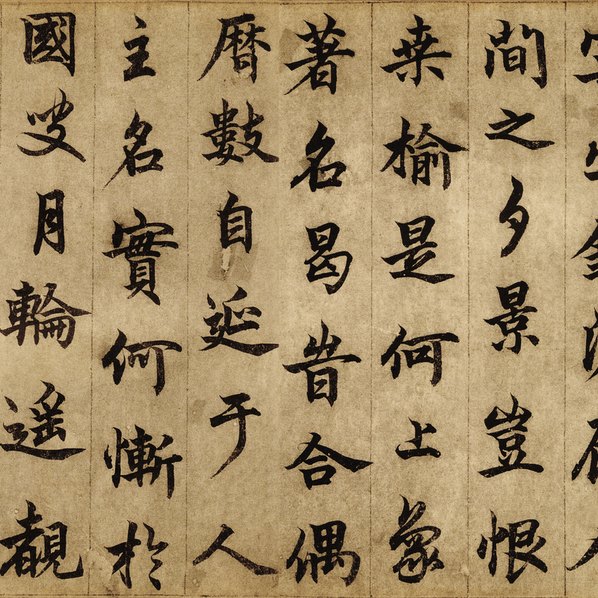 間之夕景豈恨
桒榆是何上象
著名曷昔合偶
曆數自延于人
主名實何慚於
國叟月輪遥覩